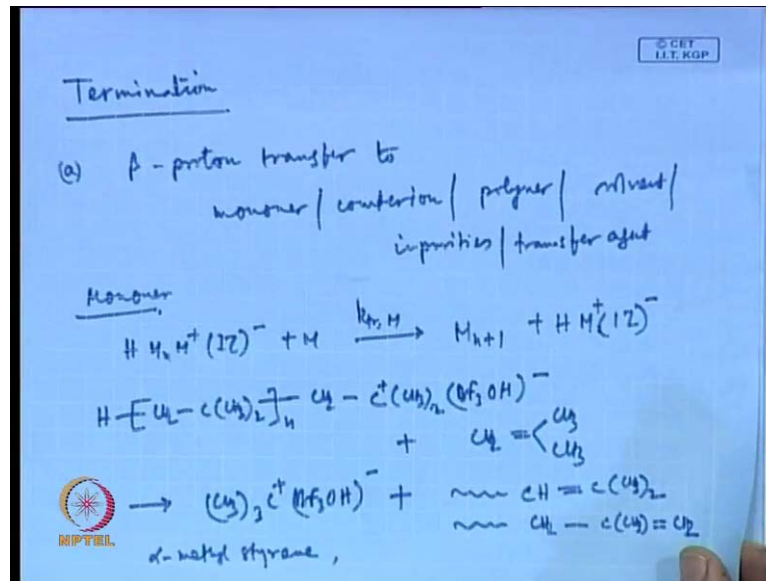 © CET
I.I.T. KGP
Termination
(a) β-proton transfer to
monomer / counterion / polymer / solvent /
impurities / transfer agent
Monomer
H MₙM⁺(IZ)⁻ + M —kₜᵣ,M→ Mₙ₊₁ + HM⁺(IZ)⁻
H-[CH₂-C(CH₃)₂]ₙ-CH₂-C⁺(CH₃)₂(BF₃OH)⁻
+ CH₂=<CH₃ CH₃
→ (CH₃)₃C⁺(BF₃OH)⁻ + ~~~ CH=C(CH₃)₂
~~~ CH₂-C(CH₃)=CH₂
α-methyl styrene,
NPTEL